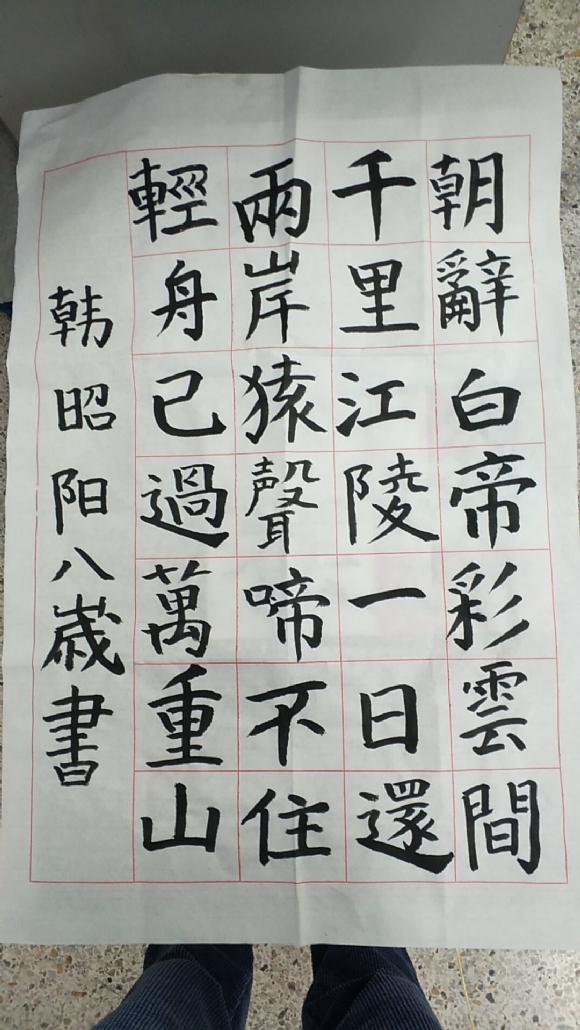 朝辭白帝彩雲間
千里江陵一日還
兩岸猿聲啼不住
輕舟已過萬重山
韩昭阳八歲書